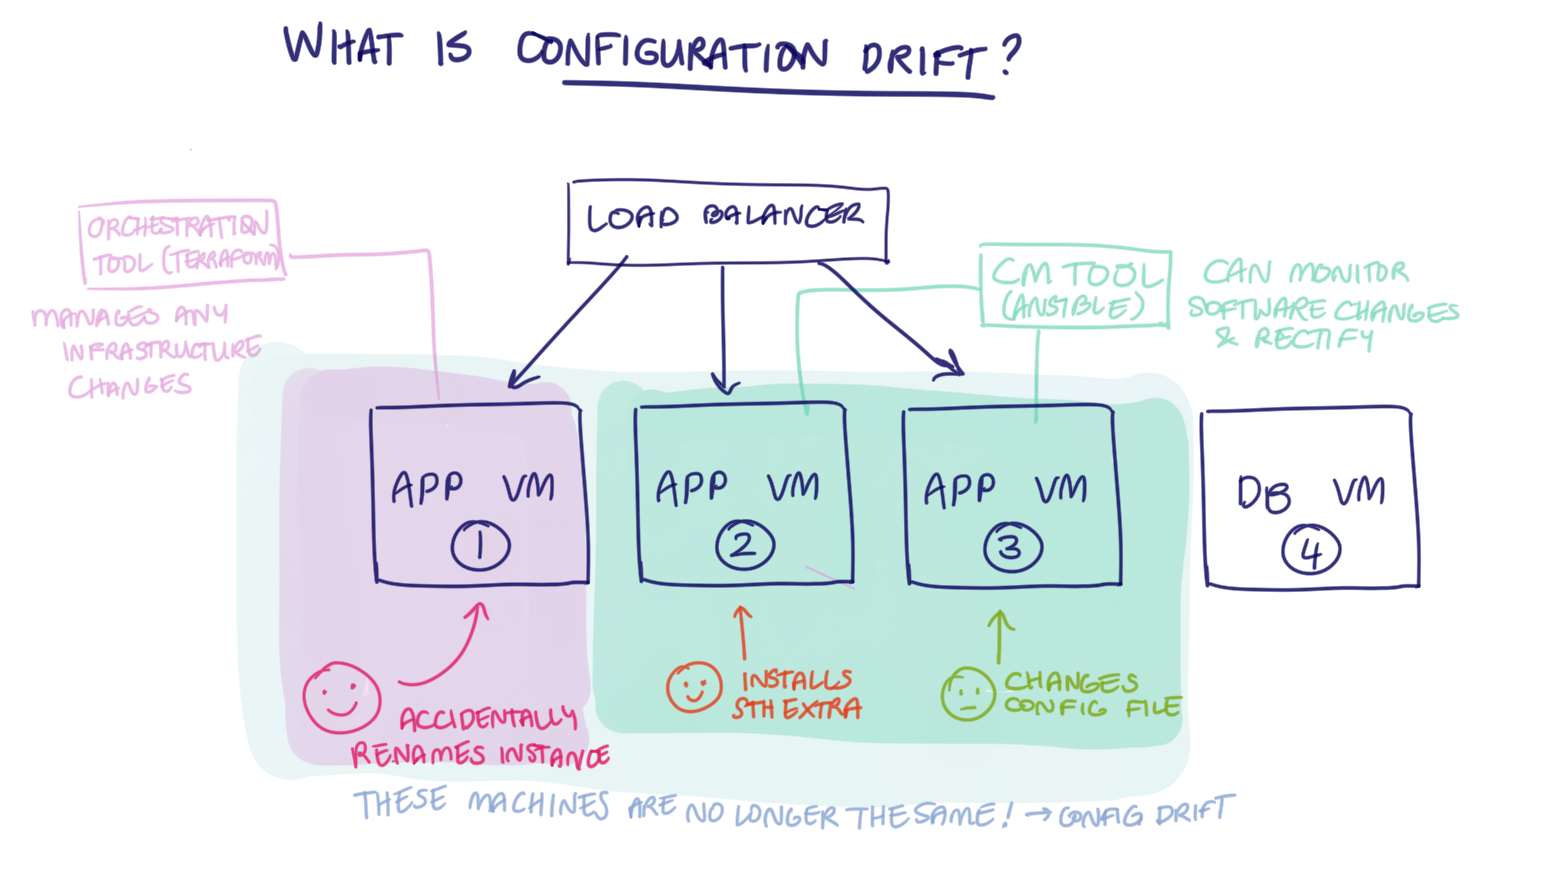 WHAT IS CONFIGURATION DRIFT?
LOAD BALANCER
ORCHESTRATION
TOOL (TERRAFORM)
MANAGES ANY
INFRASTRUCTURE
CHANGES
CM TOOL
(ANSIBLE)
CAN MONITOR
SOFTWARE CHANGES
& RECTIFY
APP VM
1
APP VM
2
APP VM
3
DB VM
4
ACCIDENTALLY
RENAMES INSTANCE
INSTALLS
STH EXTRA
CHANGES
CONFIG FILE
THESE MACHINES ARE NO LONGER THE SAME! → CONFIG DRIFT